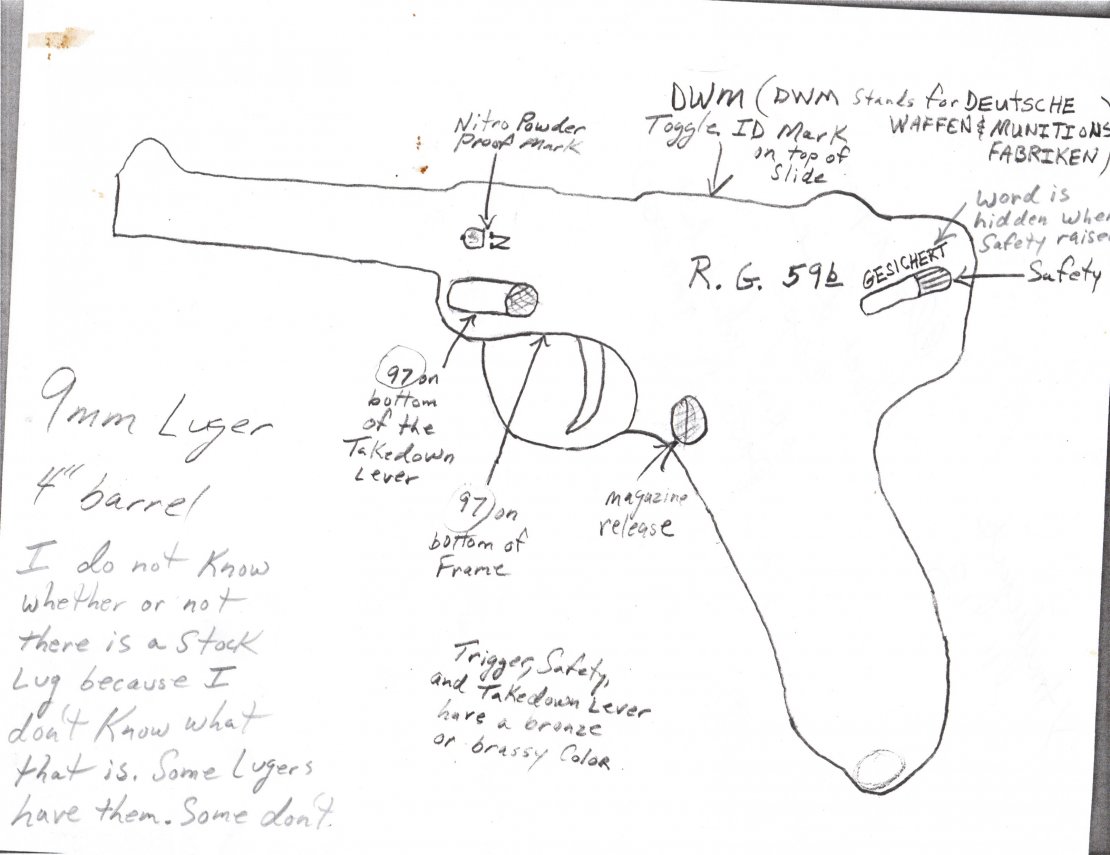 DWM (DWM stands for DEUTSCHE
WAFFEN & MUNITIONS
FABRIKEN)
Toggle ID Mark
on top of
slide
Nitro Powder
Proof Mark
word is
hidden when
Safety raised
N
R. G. 59b
GESICHERT
Safety
97 on
bottom
of the
Takedown
Lever
97 on
bottom of
Frame
magazine
release
9mm Luger
4" barrel
I do not know
whether or not
there is a stock
Lug because I
don't know what
that is. Some Lugers
have them. Some don't.
Trigger, Safety,
and Takedown Lever
have a bronze
or brassy color